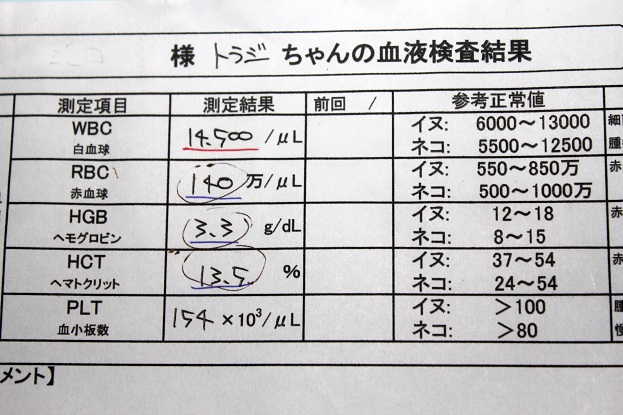 様 トラジ ちゃんの血液検査結果
測定項目 測定結果 前回 / 参考正常値
WBC 白血球 14.500 /μL イヌ: 6000～13000
ネコ: 5500～12500
RBC 赤血球 140 万/μL イヌ: 550～850万 赤
ネコ: 500～1000万
HGB ヘモグロビン 3.3 g/dL イヌ: 12～18 赤
ネコ: 8～15
HCT ヘマトクリット 13.5 % イヌ: 37～54 赤
ネコ: 24～54
PLT 血小板数 154 ×10³/μL イヌ: ＞100
ネコ: ＞80
メント】